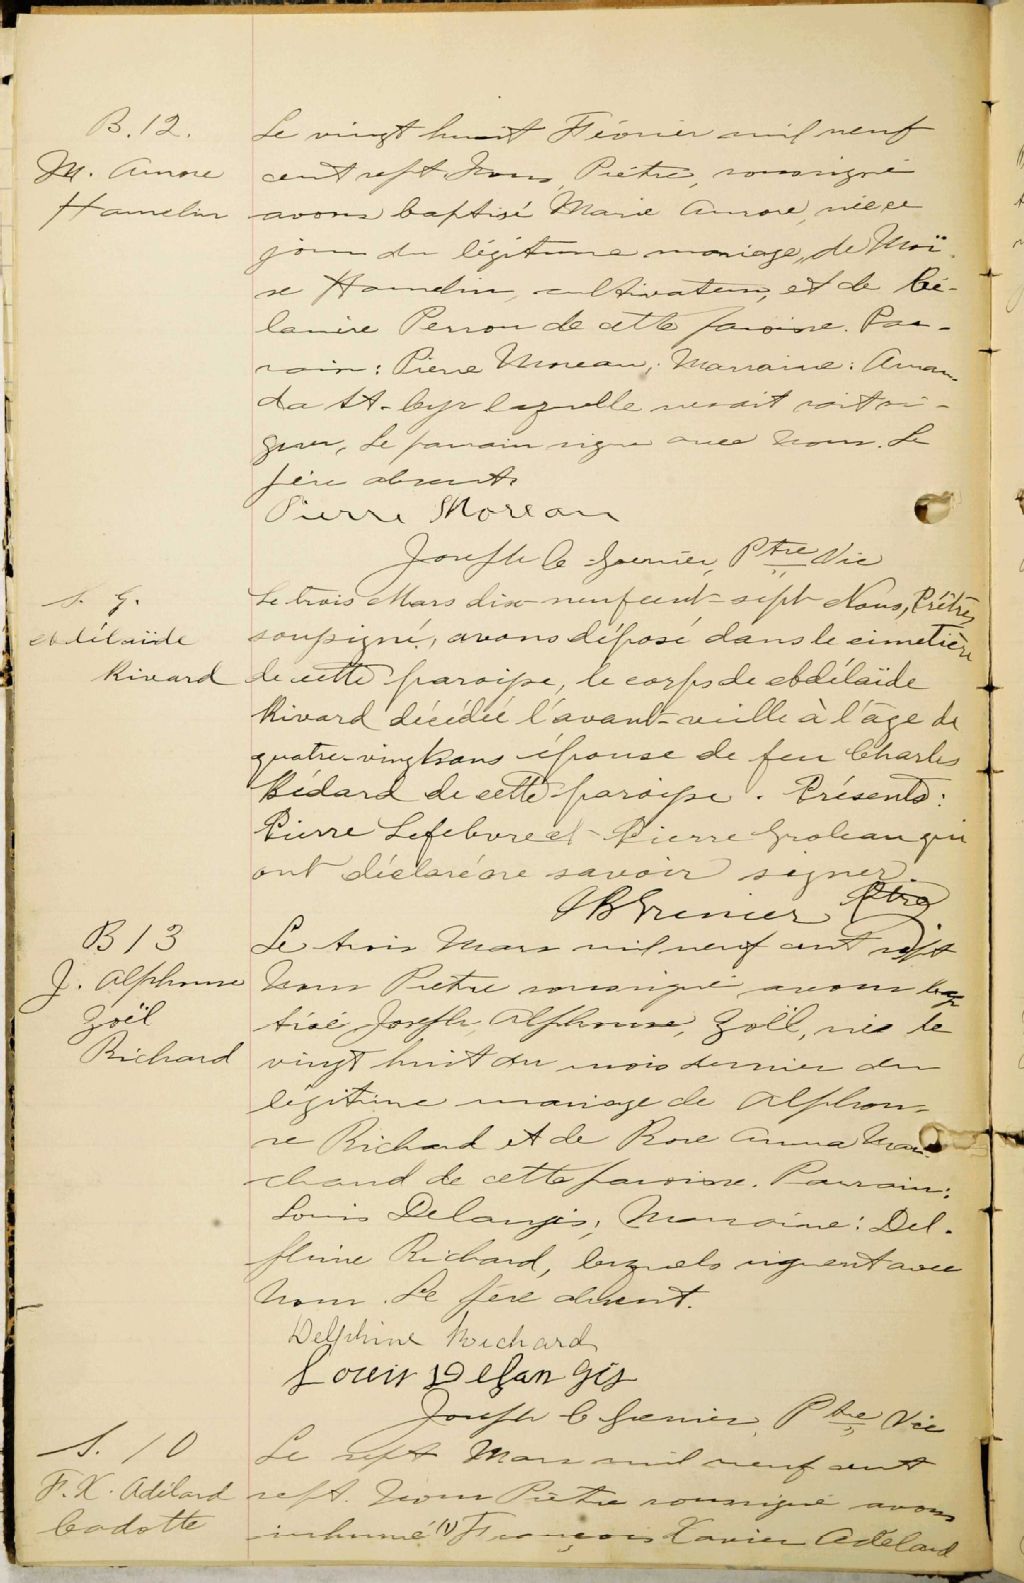 B. 12.
M. Aurore
Hamelin
Le vingt huit Février mil neuf
cent sept Nous, Prêtre, soussigné
avons baptisé Marie Aurore, née ce
jour du légitime mariage, de Moï-
se Hamelin, cultivateur, et de Cé-
lanire Perron de cette paroisse. Par-
rain: Pierre Moreau; Marraine: Aman-
da St-Cyr laquelle
gner, Le parrain signe avec nous. Le
père absent.
Pierre Moreau
Joseph C Grenier, Ptre Vic
S. 9.
Adélaïde
Rivard
Le trois Mars dix-neuf cent-sept Nous, Prêtre,
soussigné, avons déposé dans le cimetière
de cette paroisse, le corps de Adélaïde
Rivard décédée l'avant-veille à l'âge de
quatre-vingt ans épouse de feu Charles
Bédard de cette paroisse. Présents:
Pierre Lefebvre et Pierre Groleau qui
ont déclaré ne savoir signer.
JB Grenier Ptre
B 13
J. Alphonse
Zoël
Richard
Le trois Mars mil neuf cent sept
Nous Prêtre soussigné avons bap
tisé Joseph, Alphonse, Zoël, née le
vingt huit du mois dernier du
légitime mariage de Alphon-
se Richard et de Rose Anna Mar-
chand de cette paroisse. Parrain:
Louis Delangis; Marraine: Del-
phine Richard, lesquels signent avec
nous. Le père absent.
Delphine Richard
Louis Delangis
Joseph C Grenier, Ptre Vic
S. 10
F. X. Adélard
Cadotte
Le sept Mars mil neuf cent
sept. Nous Prêtre soussigné avons
inhumé (1) François Xavier Adélard